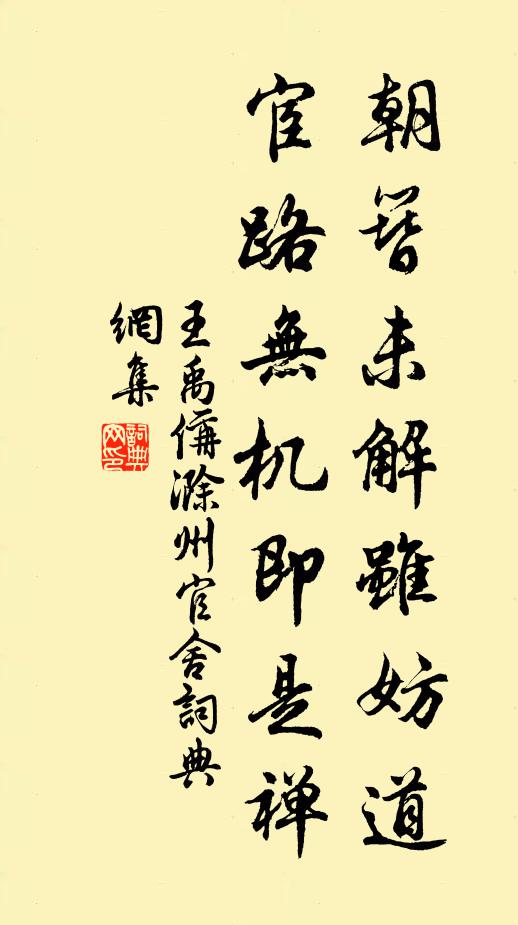 朝簪未解雖妨道
宦路無机即是禅
王禹偁滁州官舍詞典
網集
詞典
网印